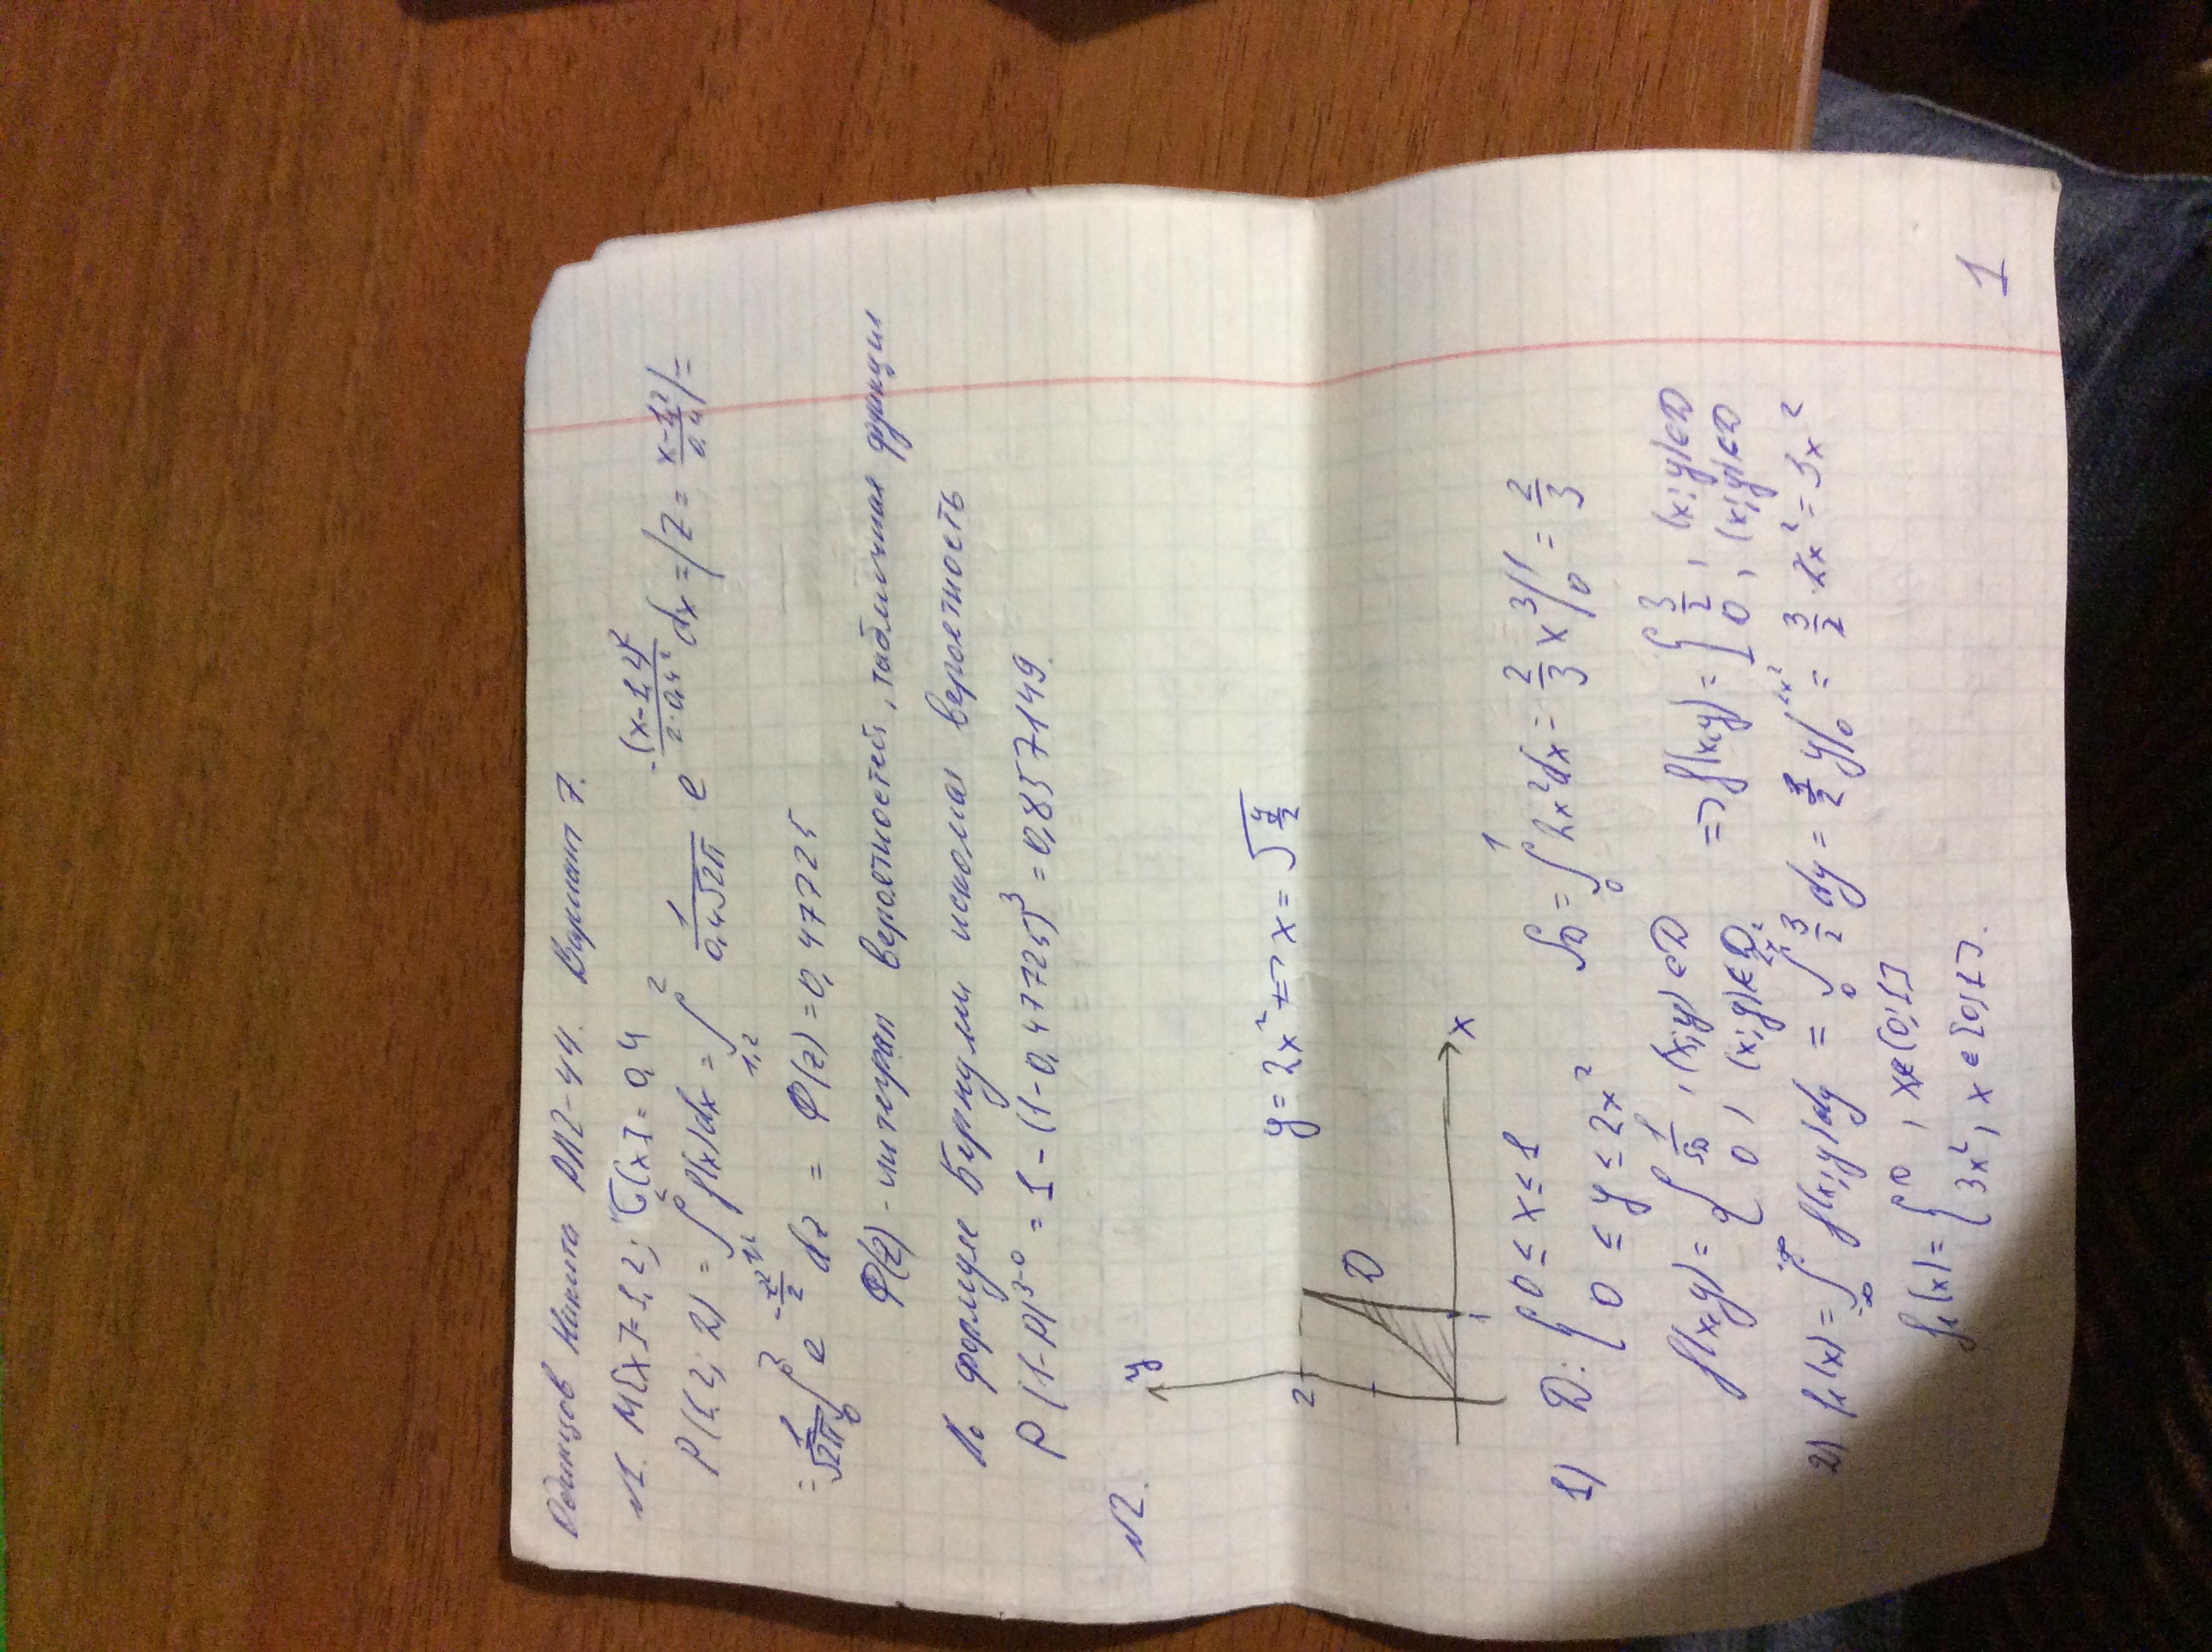 Одинцов Никита РЛ2-44. Вариант 7.
№1. M[x]=1,2; σ[x]=0,4
P(1,2; 2) = ∫_{1,2}^{2} f(x)dx = ∫_{1,2}^{2} 1/(0,4√2π) e^{-(x-1,2)²/(2·0,4²)} dx = |z = (x-1,2)/0,4| =
= 1/√2π ∫_0 e^{-z²/2} dz = Ф(z) = 0,47725
Ф(z) - интеграл вероятностей, табличная функция
По формуле Бернулли искомая вероятность
P (1-P)^{3-0} = 1 - (1-0,47725)³ = 0,857149.
№2.
y = 2x² => x = √(y/2)
y
2
D
1
x
1) D: { 0 ≤ x ≤ 1
0 ≤ y ≤ 2x²
S_D = ∫_0^1 2x²dx = 2/3 x³|_0^1 = 2/3
f(x,y) = { 1/S_D, (x;y)∈D
0, (x;y)∉D
=> f(x,y) = { 3/2, (x;y)∈D
0, (x;y)∉D
2) f₁(x) = ∫_{-∞}^{+∞} f(x;y)dy = ∫_0^{2x²} 3/2 dy = 3/2 y|_0^{2x²} = 3/2 · 2x² = 3x²
f₁(x) = { 0, x∉[0;1]
3x², x∈[0;1].
1